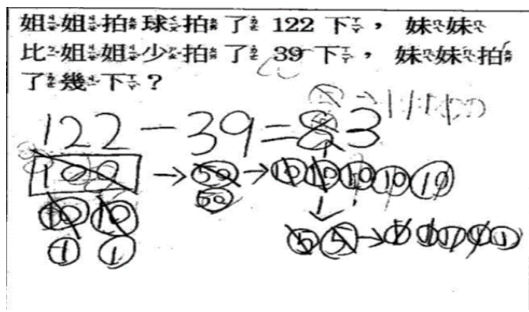 姐姐拍球拍了 122 下，妹妹
比姐姐少拍了 39 下，妹妹拍
了幾下？
122-39=83
100→50→10 10 10 10 10
10 10 50
1 1 5 5→1 1 1 1 1